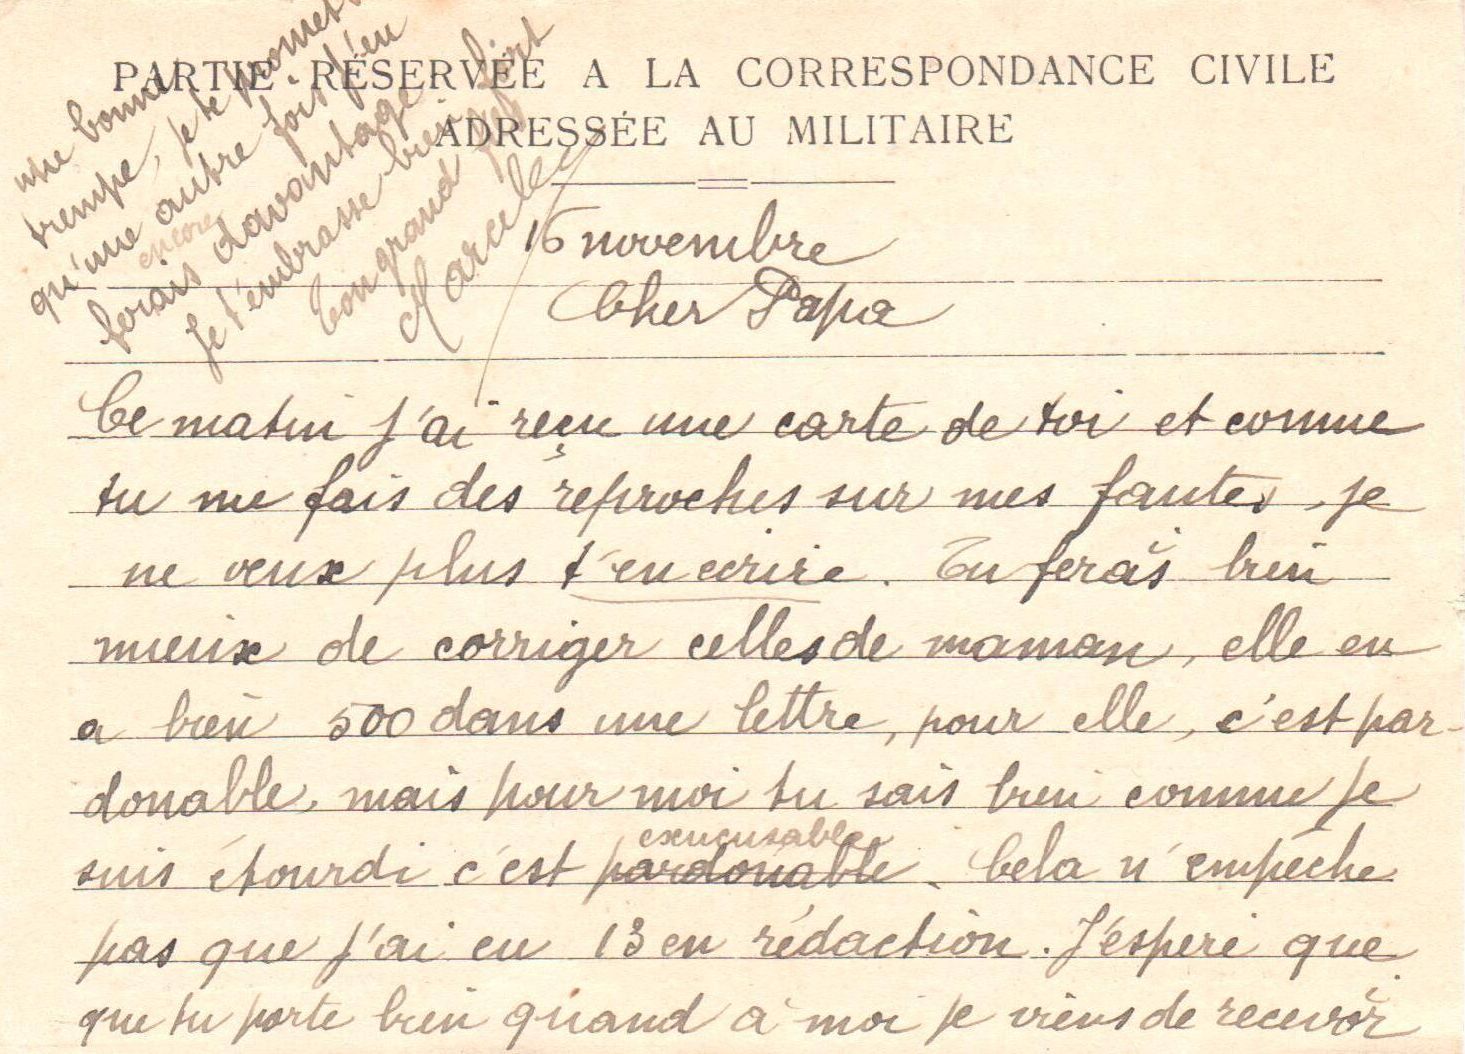 PARTIE RÉSERVÉE A LA CORRESPONDANCE CIVILE
ADRESSÉE AU MILITAIRE
16 novembre
Cher Papa
Ce matin j'ai reçu une carte de toi et comme
tu me fais des reproches sur mes fautes, je
ne veux plus t'en ecrire. Tu feras bien
mieux de corriger celles de maman, elle en
a bien 500 dans une lettre, pour elle, c'est par-
donable, mais pour moi tu sais bien comme je
excucusable
suis étourdi c'est pardonable. Cela n'empêche
pas que j'ai eu 13 en rédaction. J'éspere que
que tu porte bien quand à moi je viens de recevoir
une bonne
trempe, je te promet
qu'une autre fois j'en
encore
ferais davantage
Je t'embrasse bien fort
Ton grand
Marcel